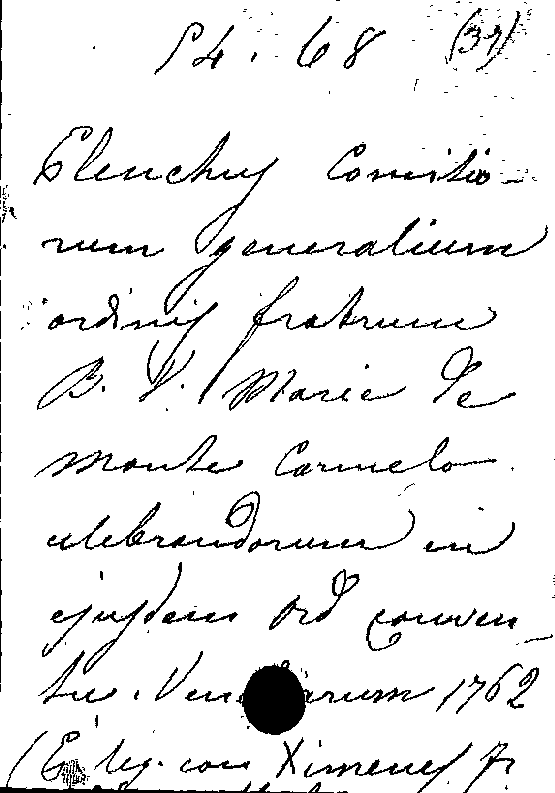 P4. 68 (37)
Elenchus Comitio-
rum generalium
ordinis fratrum
B. V. Marie de
Monte Carmelo
celebrandorum in
ejusdem ord conven-
tu. 1762
(E leg. con Ximenes